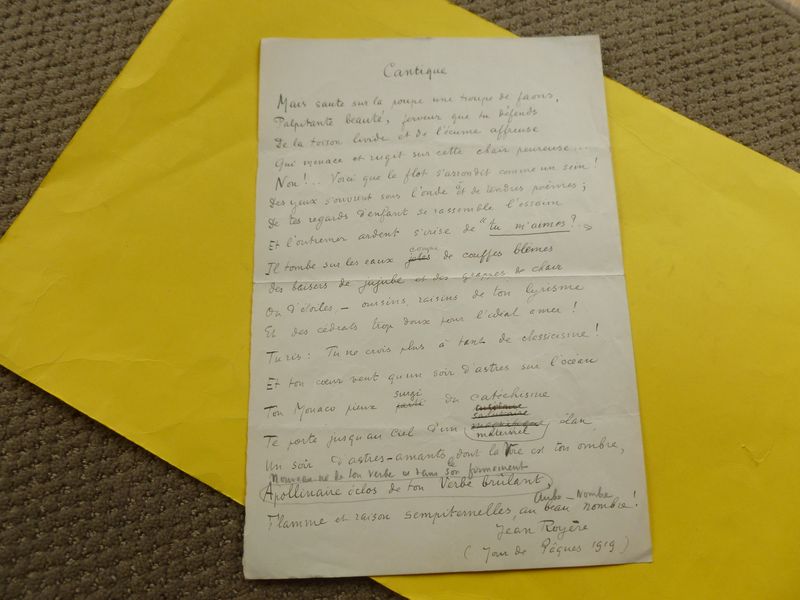 Cantique
Mais saute sur la poupe une troupe de faons,
Palpitante beauté, ferveur que tu défends
De la toison livide et de l'écume affreuse
Qui menace et rugit sur cette chair peureuse...
Non!... Voici que le flot s'arrondit comme un sein!
Des yeux s'ouvrent sous l'onde et de tendres poèmes;
De tes regards d'enfant se rassemble l'essaim
Et l'outremer ardent s'irise de "tu m'aimes?"
comme
Il tombe sur les eaux de couffes blèmes
des baisers de jujube et des grappes de chair
Ou d'étoiles - oursins, raisins de ton lyrisme
Et des cédrats trop doux pour l'idéal amer!
Tu ris: Tu ne crois plus à tant de classicisme!
Et ton cœur veut qu'un soir d'astres sur l'océan
surgi
Ton Monaco pieux du catéchisme
insulaire
salutaire
magnétique
Te porte jusqu'au ciel d'un maternel élan,
Un soir d'astres-amants dont la Voie est ton ombre,
Nouveau-né de ton verbe et dans le firmament
Apollinaire éclos de ton Verbe brûlant,
Aube-Nombre
Flamme et raison sempiternelles, au beau nombre!
Jean Royère
(Jour de Pâques 1919)